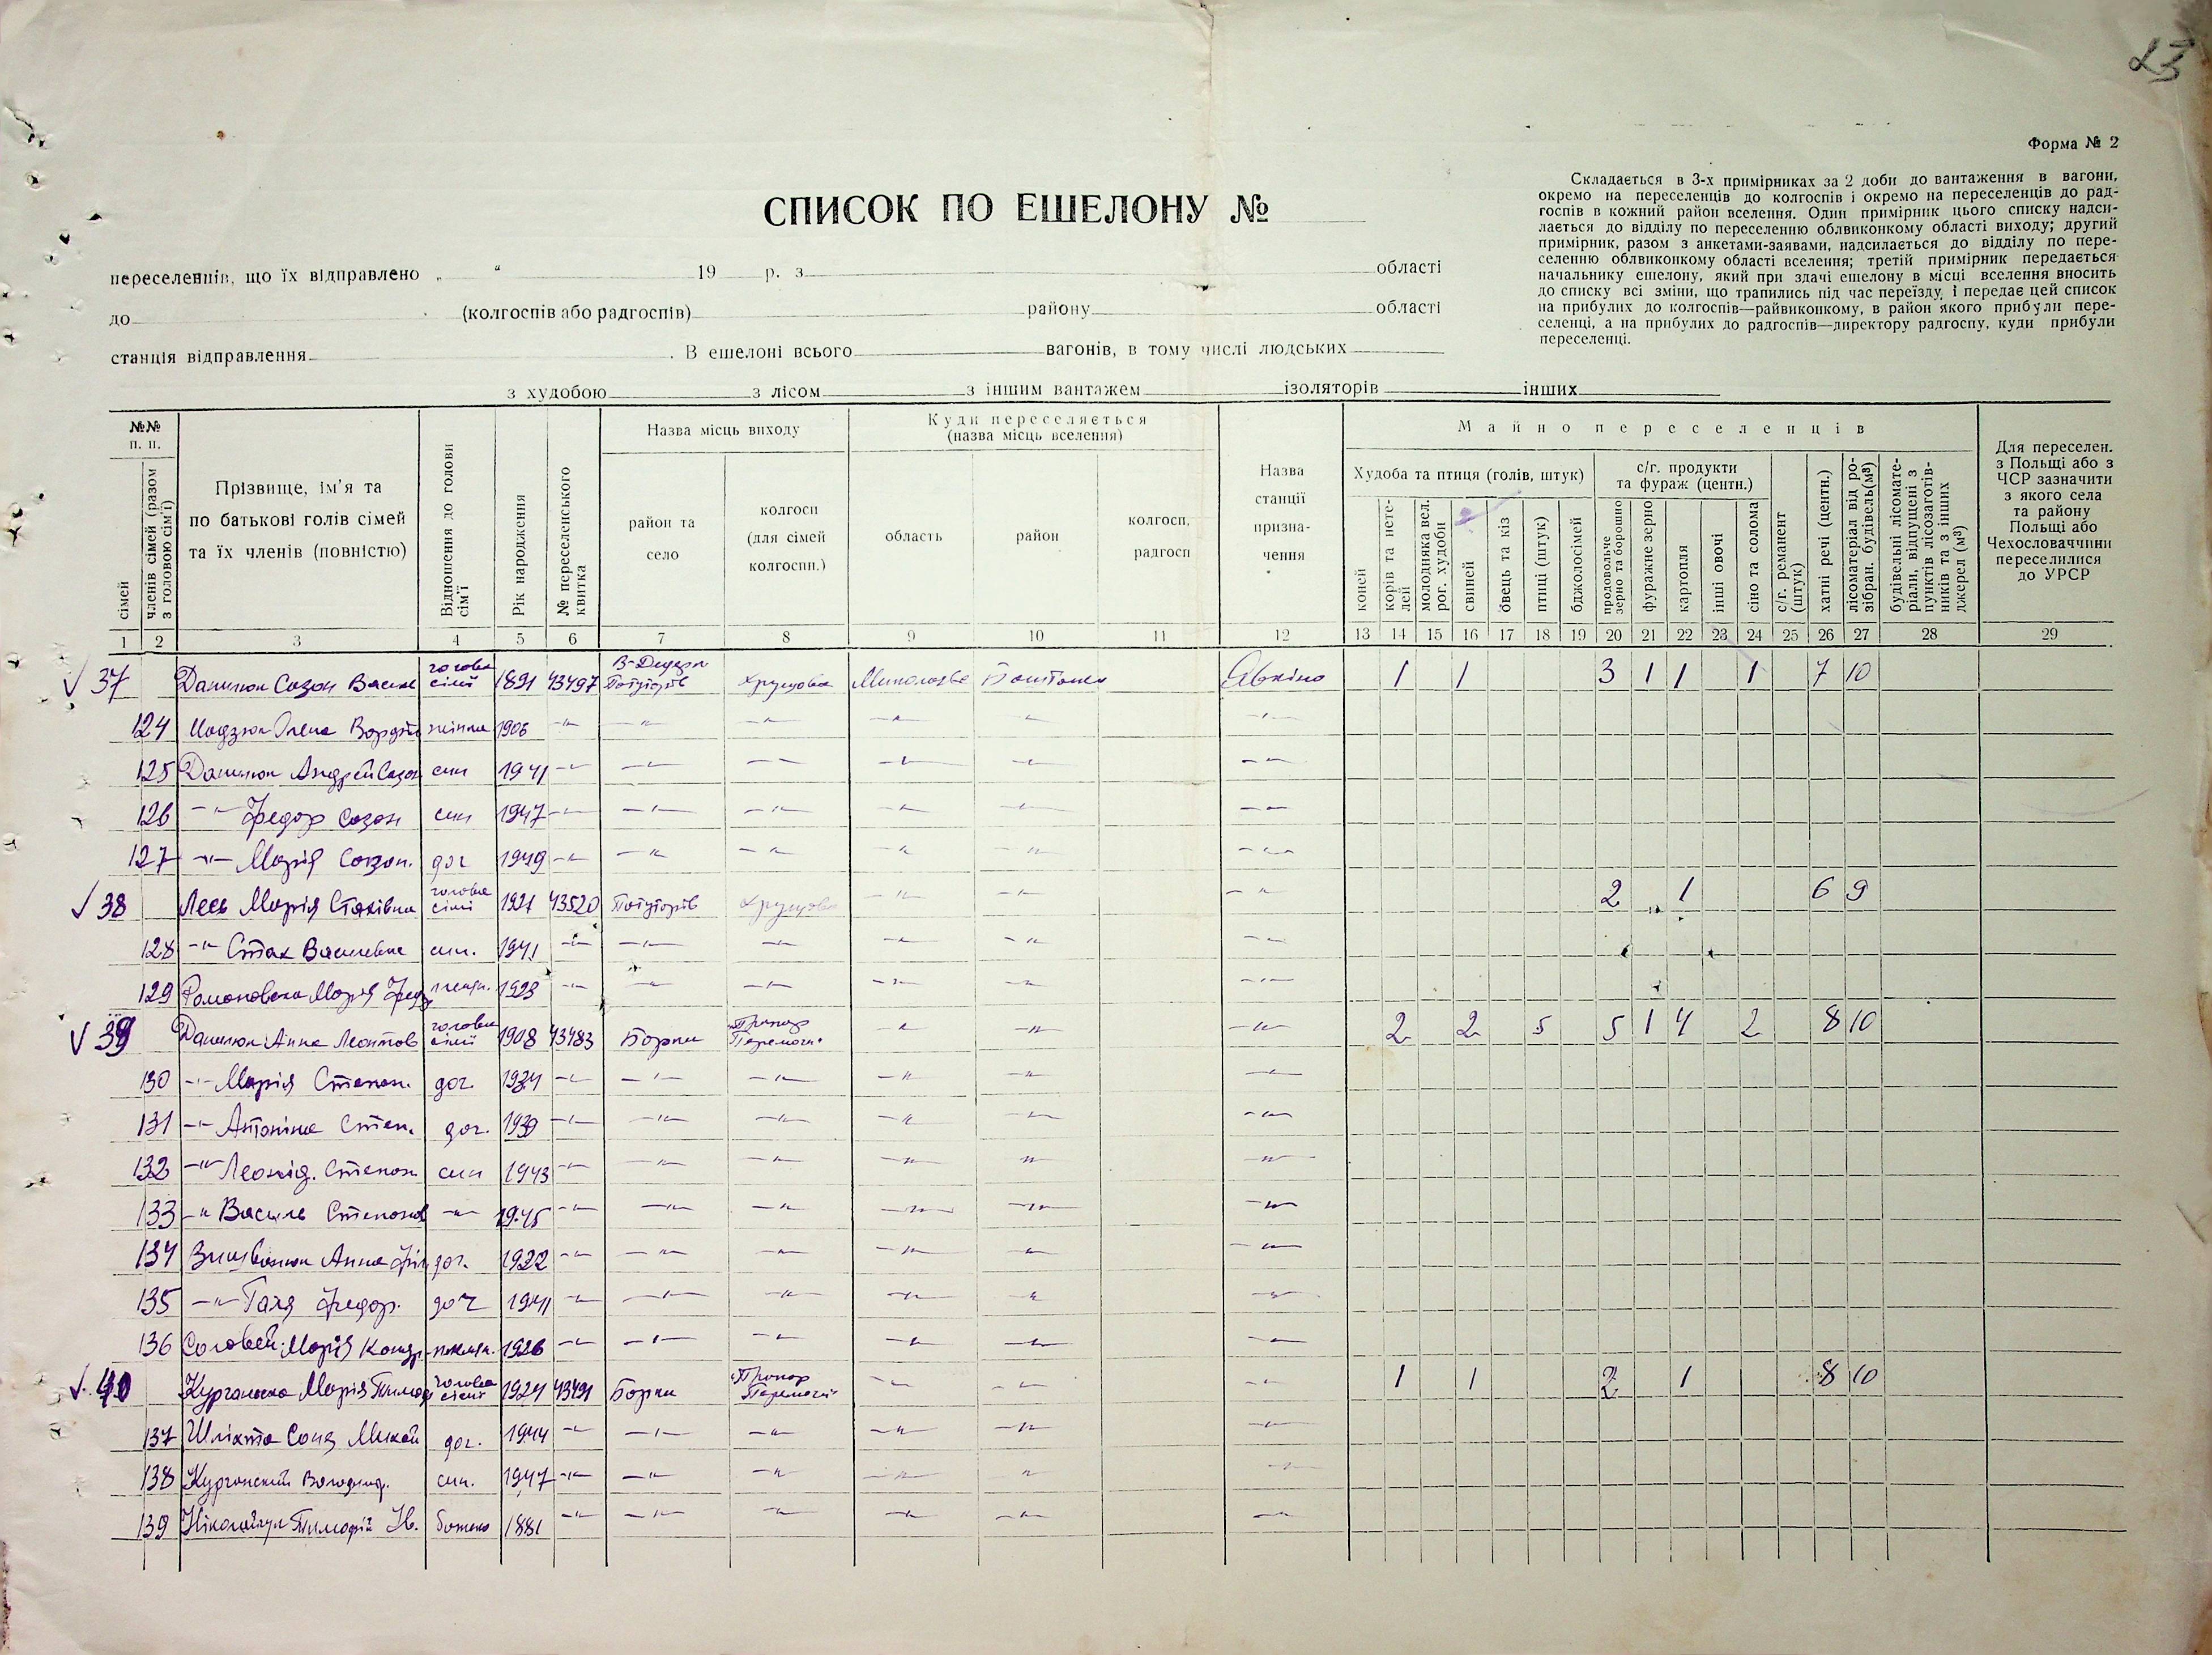 23
Форма № 2
СПИСОК ПО ЕШЕЛОНУ №
Складається в 3-х примірниках за 2 доби до вантаження в вагони,
окремо на переселенців до колгоспів і окремо на переселенців до рад-
госпів в кожний район вселення. Один примірник цього списку надси-
лається до відділу по переселенню облвиконкому області виходу; другий
примірник, разом з анкетами-заявами, надсилається до відділу по пере-
селенню облвиконкому області вселення; третій примірник передається
начальнику ешелону, який при здачі ешелону в місці вселення вносить
до списку всі зміни, що трапились під час переїзду, і передає цей список
на прибулих до колгоспів—райвиконкому, в район якого прибули пере-
селенці, а на прибулих до радгоспів—директору радгоспу, куди прибули
переселенці.
переселенців, що їх відправлено „ “ 19 р. з області
до (колгоспів або радгоспів) району області
станція відправлення . В ешелоні всього вагонів, в тому числі людських
з худобою з лісом з іншим вантажем ізоляторів інших
№№ п. п.
сімей
членів сімей (разом з головою сім'ї)
Прізвище, ім'я та
по батькові голів сімей
та їх членів (повністю)
Відношення до голови сім'ї
Рік народження
№ переселенського квитка
Назва місць виходу
район та
село
колгосп
(для сімей
колгоспн.)
Куди переселяється
(назва місць вселення)
область
район
колгосп,
радгосп
Назва
станції
призна-
чення
Майно переселенців
Худоба та птиця (голів, штук)
коней
корів та нете-
лей
молодняка вел.
рог. худоби
свиней
овець та кіз
птиці (штук)
бджолосімей
с/г. продукти
та фураж (центн.)
продовольче
зерно та борошно
фуражне зерно
картопля
інші овочі
сіно та солома
с/г. реманент
(штук)
хатні речі (центн.)
лісоматеріал від ро-
зібран. будівель(м³)
будівельні лісомате-
ріали, відпущені з
пунктів лісозаготів-
ників та з інших
джерел (м³)
Для переселен.
з Польщі або з
ЧСР зазначити
з якого села
та району
Польщі або
Чехословаччини
переселилися
до УРСР
1 2 3 4 5 6 7 8 9 10 11 12 13 14 15 16 17 18 19 20 21 22 23 24 25 26 27 28 29
√ 37 Данилюк Созон голова сімї 1891 43497 Явкіно 1 1 3 1 1 1 7 10
124 Олена жінка 1906 -"- -"- -"- -"- -"- -"-
125 Данилюк Андрей Созон син 1941 -"- -"- -"- -"- -"- -"-
126 -"- Федор Созон син 1947 -"- -"- -"- -"- -"- -"-
127 -"- Марія Созон. доч 1949 -"- -"- -"- -"- -"- -"-
√ 38 Лесь Марія голова сімї 1921 43520 -"- -"- -"- 2 1 6 9
128 -"- Стах син. 1941 -"- -"- -"- -"- -"- -"-
129 Марія 1923 -"- -"- -"- -"- -"- -"-
√ 39 Данилюк Анна Леонтов голова сімї 1908 43483 Борки "Прапор Перемоги" -"- -"- -"- 2 2 5 5 1 4 2 8 10
130 -"- Марія Степан. доч. 1934 -"- -"- -"- -"- -"- -"-
131 -"- Антоніна Степ. доч. 1939 -"- -"- -"- -"- -"- -"-
132 -"- Леонід. Степан син 1943 -"- -"- -"- -"- -"- -"-
133 -"- Василь Степанов -"- 1945 -"- -"- -"- -"- -"- -"-
134 Анна доч. 1922 -"- -"- -"- -"- -"- -"-
135 -"- Галя Федор. доч 1941 -"- -"- -"- -"- -"- -"-
136 Соловей Марія 1926 -"- -"- -"- -"- -"- -"-
√ 40 Марія Тимоф голова сімї 1924 43491 Борки "Прапор Перемоги" -"- -"- -"- 1 1 2 1 8 10
137 Шліхта Соня Михай доч. 1944 -"- -"- -"- -"- -"- -"-
138 Курганский Володимир. син. 1947 -"- -"- -"- -"- -"- -"-
139 Ніколайчук Тимофій Ів. батько 1881 -"- -"- -"- -"- -"- -"-